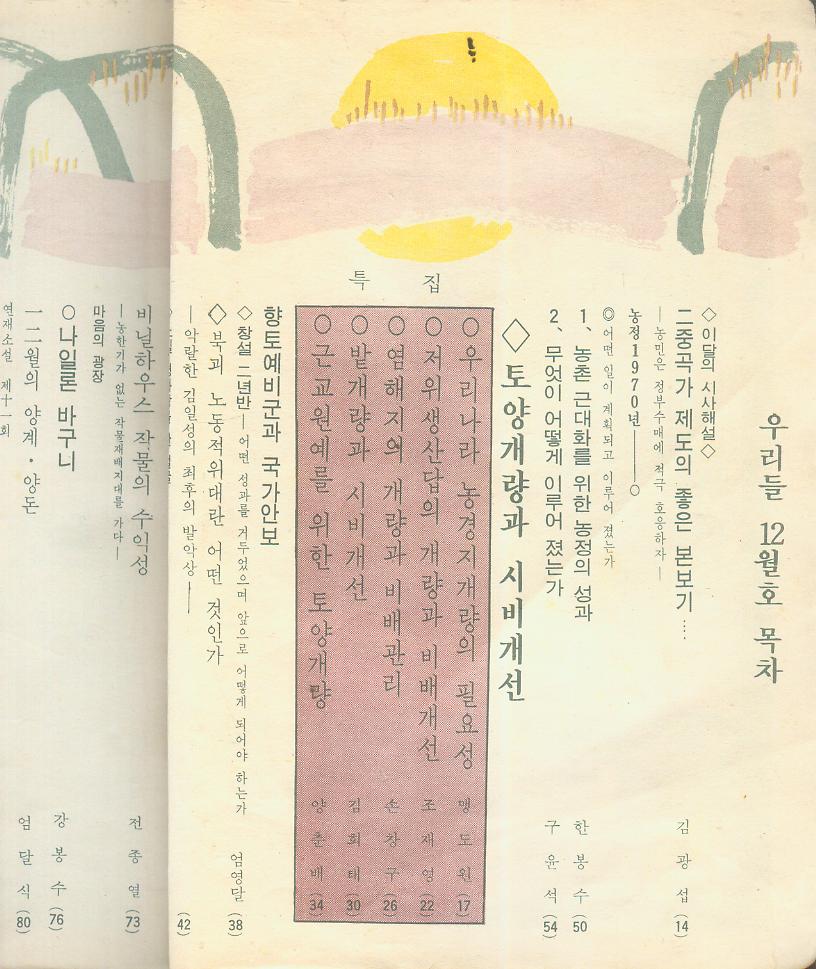 우리들 12월호 목차
◇이달의 시사해설◇
二중곡가 제도의 좋은 본보기…
—농민은 정부수매에 적극 호응하자—
김광섭 (14)
농정1970년——○
◎어떤 일이 계획되고 이루어 졌는가
1、농촌 근대화를 위한 농정의 성과
한봉수 (50)
2、무엇이 어떻게 이루어 졌는가
구윤석 (54)
특집
◇토양개량과 시비개선
○우리나라 농경지개량의 필요성 맹도원 (17)
○저위생산답의 개량과 비배개선 조재영 (22)
○염해지의 개량과 비배관리 손창구 (26)
○밭개량과 시비개선 김희태 (30)
○근교원예를 위한 토양개량 양춘배 (34)
향토예비군과 국가안보
◇창설 二년반—어떤 성과를 거두었으며 앞으로 어떻게 되어야 하는가 엄영달 (38)
◇북괴 노동적위대란 어떤 것인가
—악랄한 김일성의 최후의 발악상—
(42)
비닐하우스 작물의 수익성
전종열 (73)
—농한기가 없는 작물재배지대를 가다—
마음의 광장
○나일론 바구니
강봉수 (76)
一二월의 양계·양돈
엄달식 (80)
연재소설 제十一회